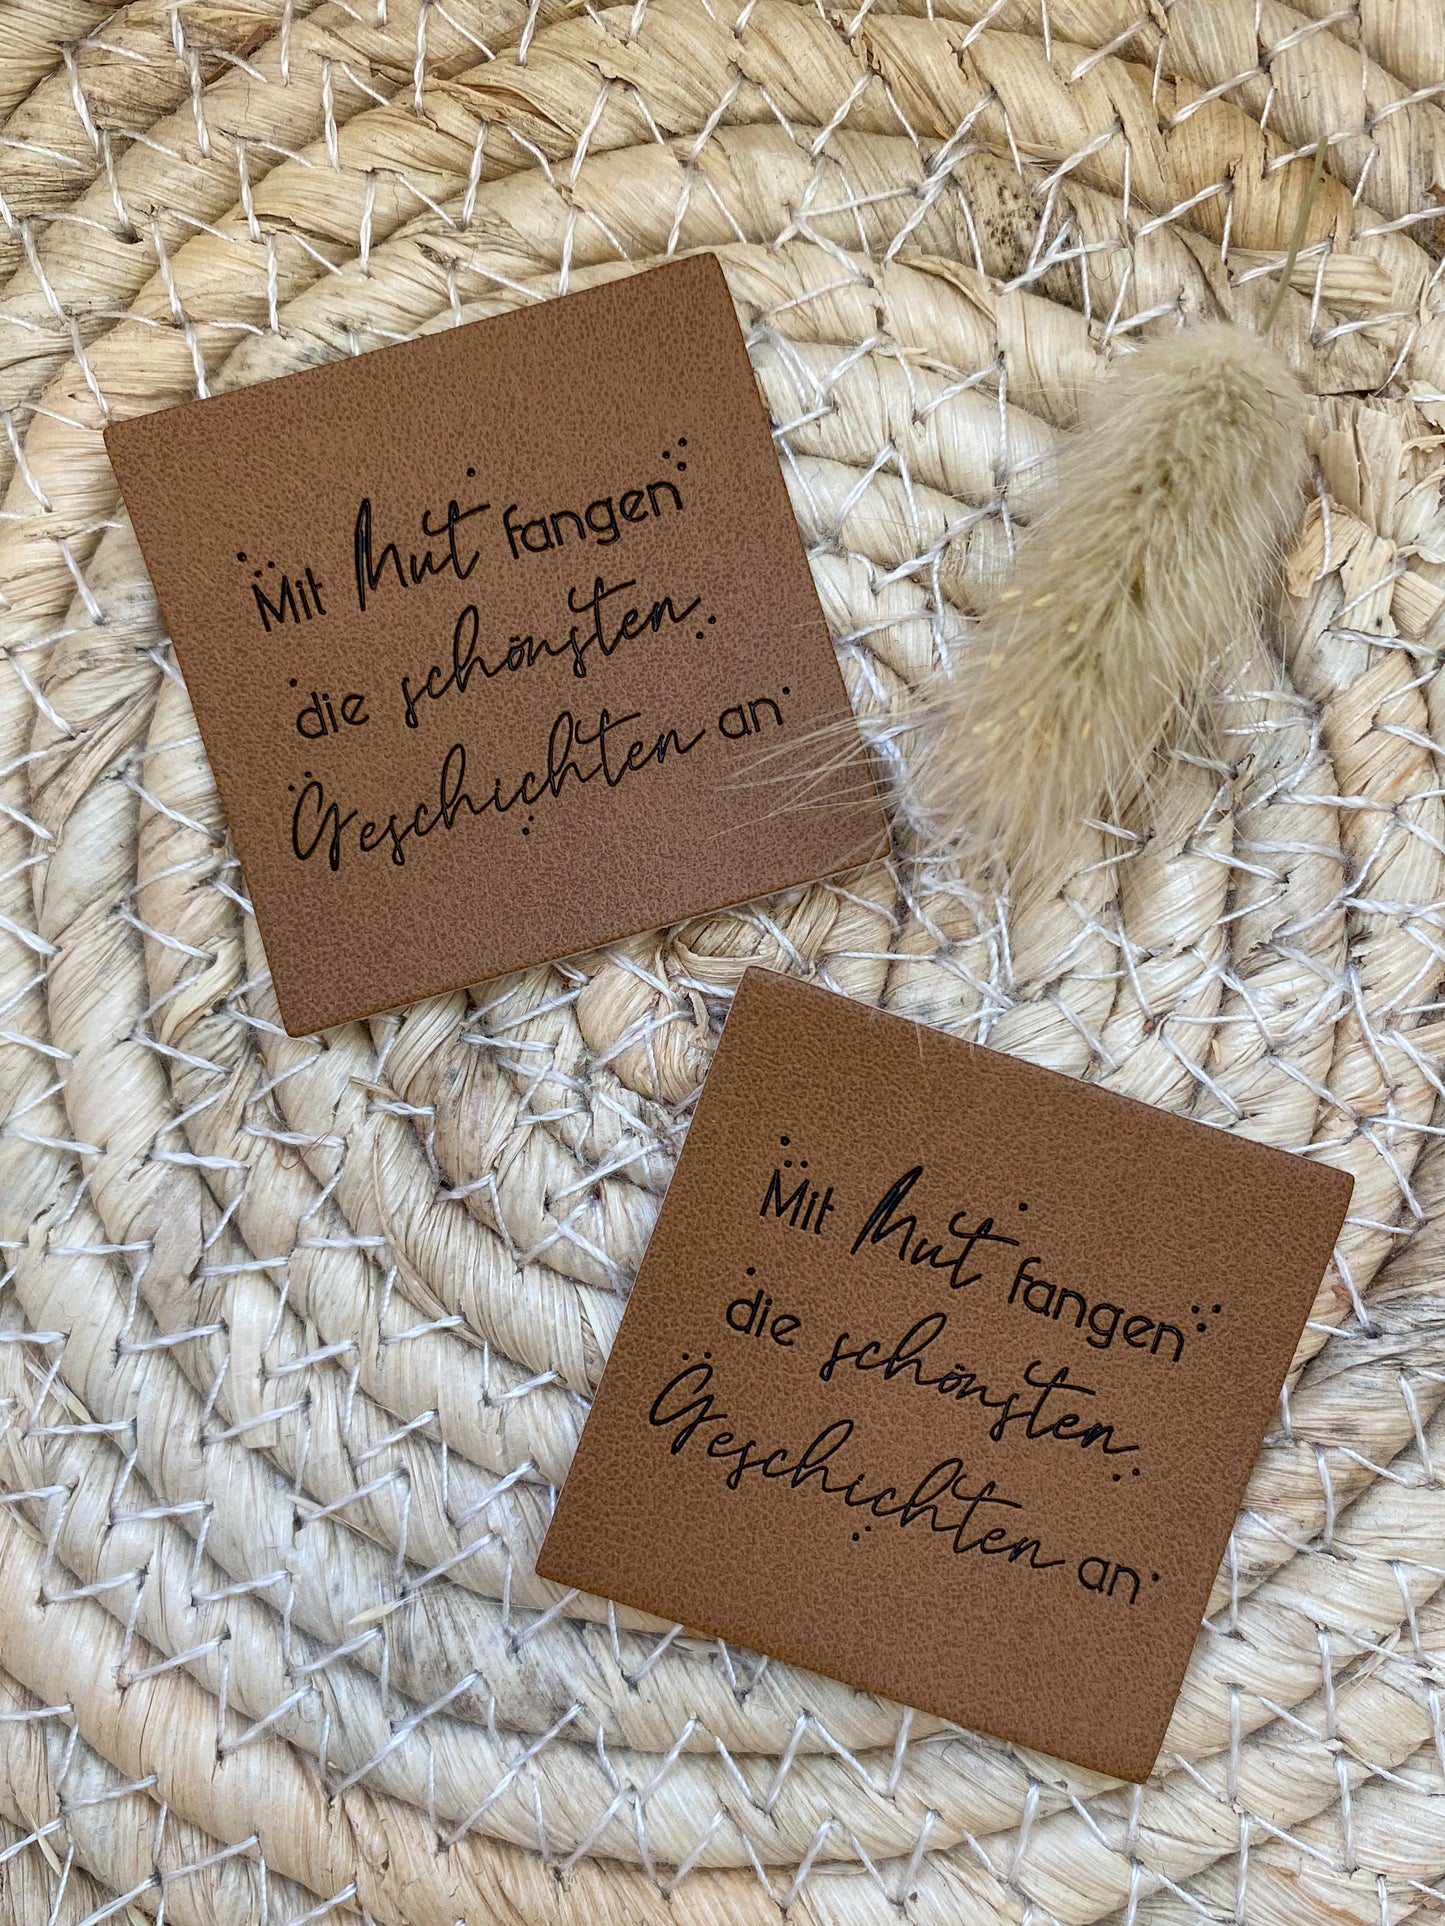 Mit Mut fangen
die schönsten
Geschichten an
Mit Mut fangen
die schönsten
Geschichten an